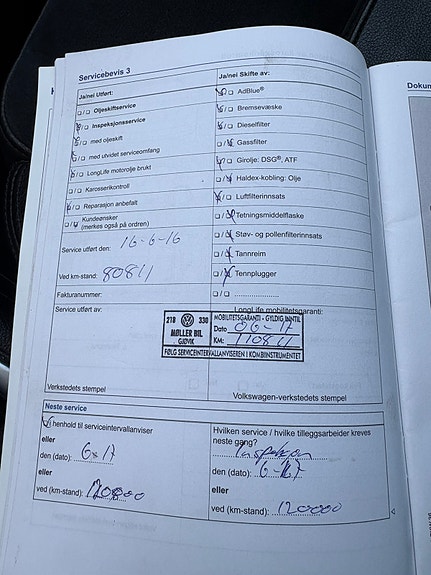 Servicebevis 3
Ja/nei Utført:
Oljeskiftservice
Inspeksjonsservice
med oljeskift
med utvidet serviceomfang
LongLife motorolje brukt
Karosserikontroll
Reparasjon anbefalt
Kundeønsker
(merkes også på ordren)
Service utført den: 16-6-16
Ved km-stand: 80811
Fakturanummer:
Service utført av:
Verkstedets stempel
Ja/nei Skifte av:
AdBlue®
Bremsevæske
Dieselfilter
Gassfilter
Girolje: DSG®, ATF
Haldex-kobling: Olje
Luftfilterinnsats
Tetningsmiddelflaske
Støv- og pollenfilterinnsats
Tannreim
Tennplugger
LongLife mobilitetsgaranti:
218 330
MØLLER BIL
GJØVIK
MOBILITETSGARANTI - GYLDIG INNTIL
Dato 06-17
KM: 110811
FØLG SERVICEINTERVALLANVISEREN I KOMBIINSTRUMENTET
Volkswagen-verkstedets stempel
Neste service
I henhold til serviceintervallanviser
eller
den (dato): 6-17
eller
ved (km-stand): 120800
Hvilken service / hvilke tilleggsarbeider kreves
neste gang?
Inspeksjon
den (dato): 6-17
eller
ved (km-stand): 120000
Dokum